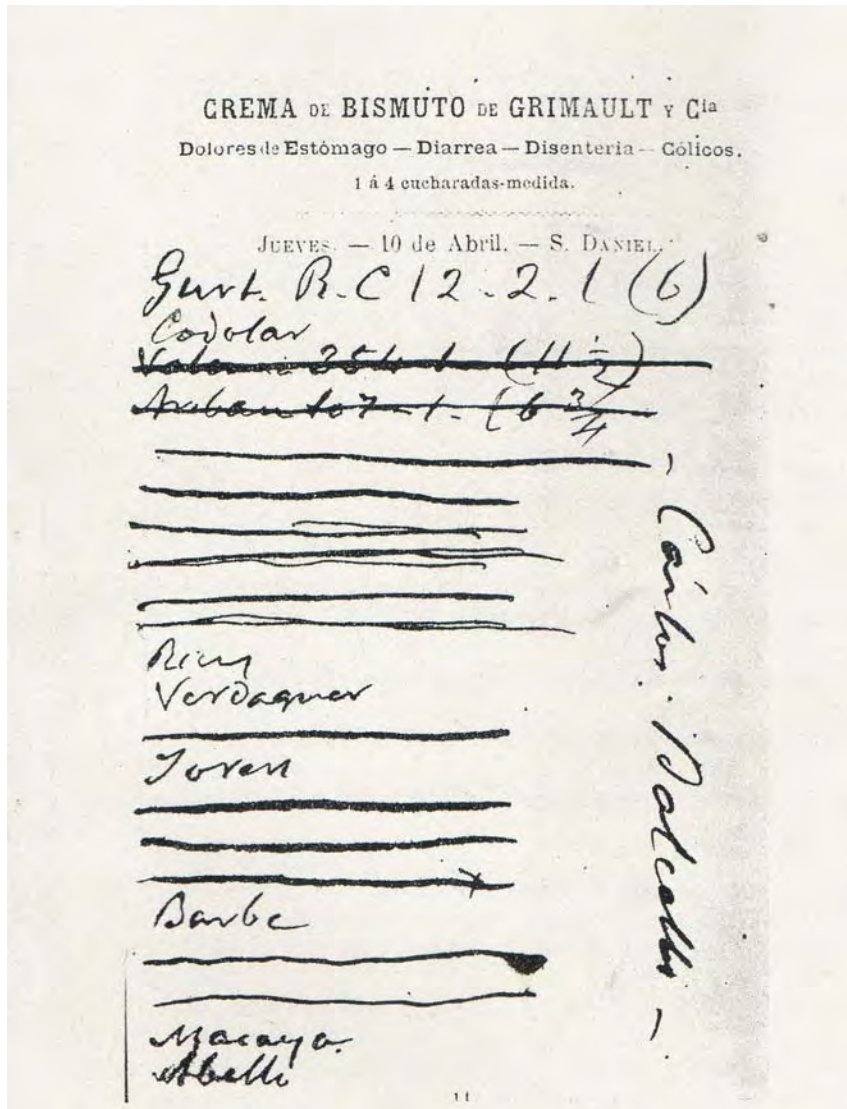 CREMA DE BISMUTO DE GRIMAULT Y Cia
Dolores de Estómago — Diarrea — Disenteria — Cólicos.
1 á 4 cucharadas-medida.
JUEVES. — 10 de Abril. — S. DANIEL.
Gust. R. C 12-2-1 (6)
Codolar
(11 1/2)
107-1- (6 3/4
Rius
Verdaguer
Joven
Barbe
Macaya.
Abelló
— Cárlos
11